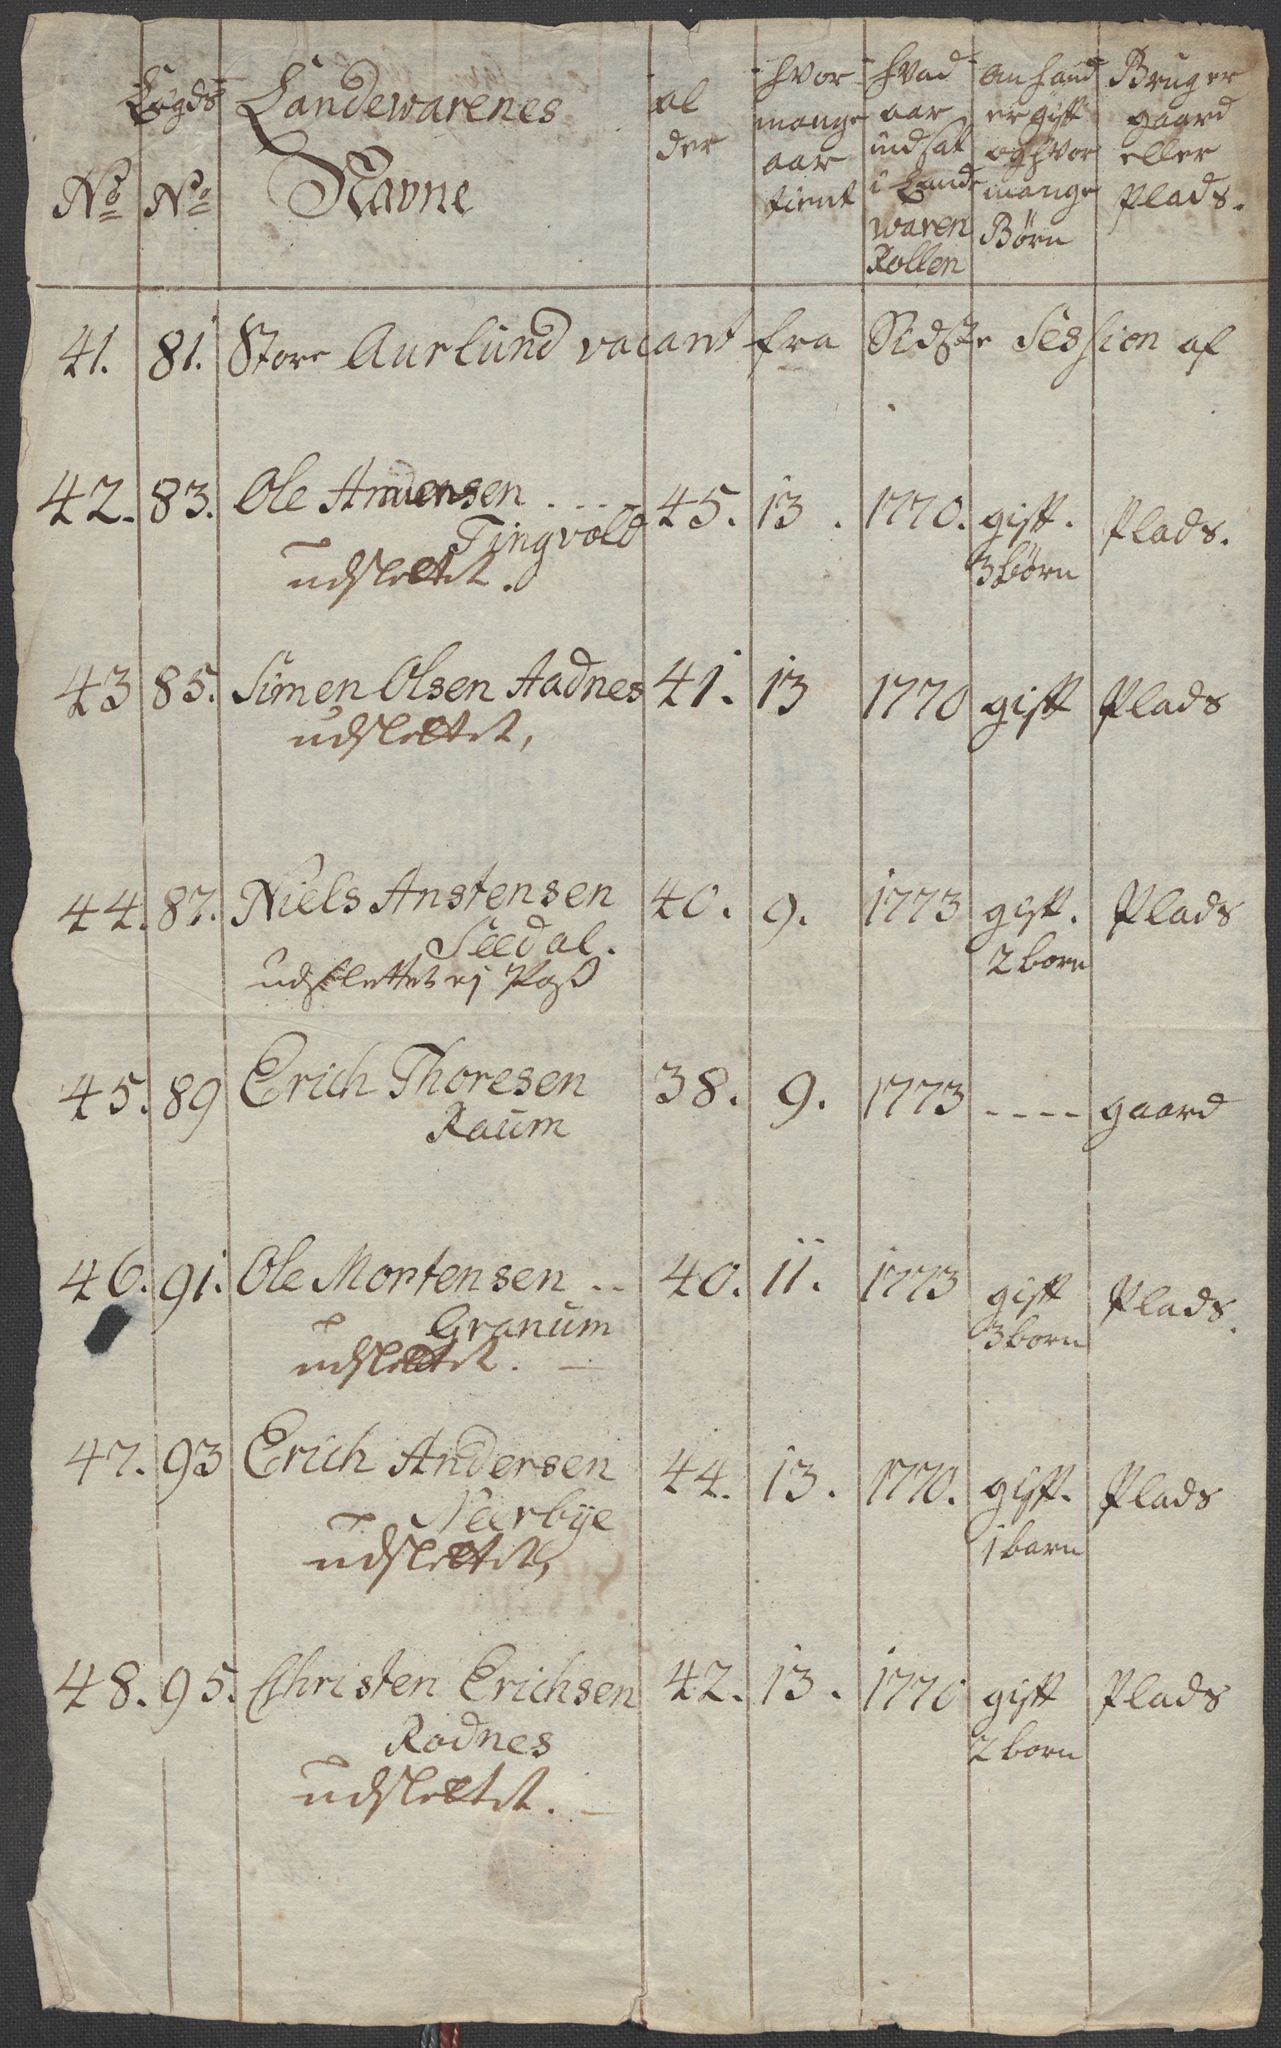 No
Lægds No
Landewarenes
Navne
al
der
hvor
mange
aar
tient
hvad
aar
indsat
i Lande
waren
Rollen
om hand
er gift
og hvor
mange
Børn
Bruger
gaard
eller
Plads.
41. 81. Store Aurlund vacant fra Sidste Session af
42. 83. Ole Amundsen .... 45. 13. 1770. gift. Plads.
Tingvold 3 børn
udslettet.
43 85. Simen Olsen Aadnes 41. 13 1770 gift Plads
udslettet,
44. 87. Niels Anstensen 40. 9. 1773 gift. Plads
Seedal. 2 born
udslettet ej Pass
45. 89 Erich Thoresen 38. 9. 1773 ---- gaard
Raum
46. 91. Ole Mortensen .. 40. 11. 1773 gift Plads.
Granum 3 born
udslettet. —
47. 93 Erich Andersen 44. 13. 1770. gift. Plads
Neerbye 1 barn
udslettet,
48. 95. Christen Erichsen 42. 13. 1770 gift Plads
Rodnes 2 born
udslettet. —